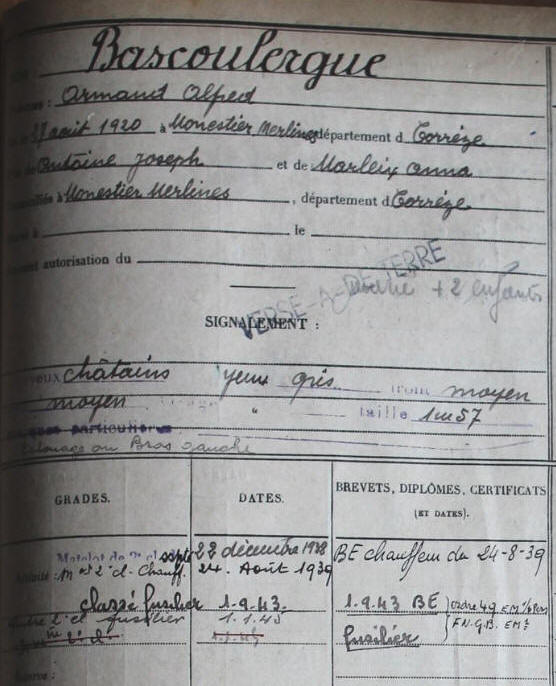 Bascoulergue
: Armand Alfred
27 août 1920 à Monestier Merlines département d Corrèze
Antoine Joseph et de Marleix Anna
à Monestier Merlines, département d Corrèze
à le
autorisation du
VERSÉ-A-DE TERRE
+ 2 enfants
SIGNALEMENT :
châtains yeux gris front moyen
moyen " taille 1m57
particulières
Tatouage au Bras gauche
GRADES. DATES. BREVETS, DIPLÔMES, CERTIFICATS
(ET DATES).
Matelot de 2e cl 22 décembre 1938 BE chauffeur du 24-8-39
2e cl. Chauff. 24. Août 1939
classé fusilier 1-9-43. 1-9-43 BE
2e cl fusilier 1-1-43 fusilier
ordre 49 EM
F.N.G.B. EM